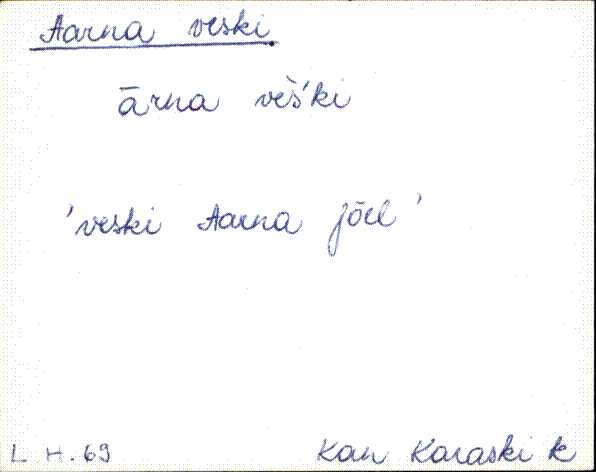 Aarna veski
ārna vèš́ki
'veski Aarna jõel'
L H. 69 Kan Karaski k